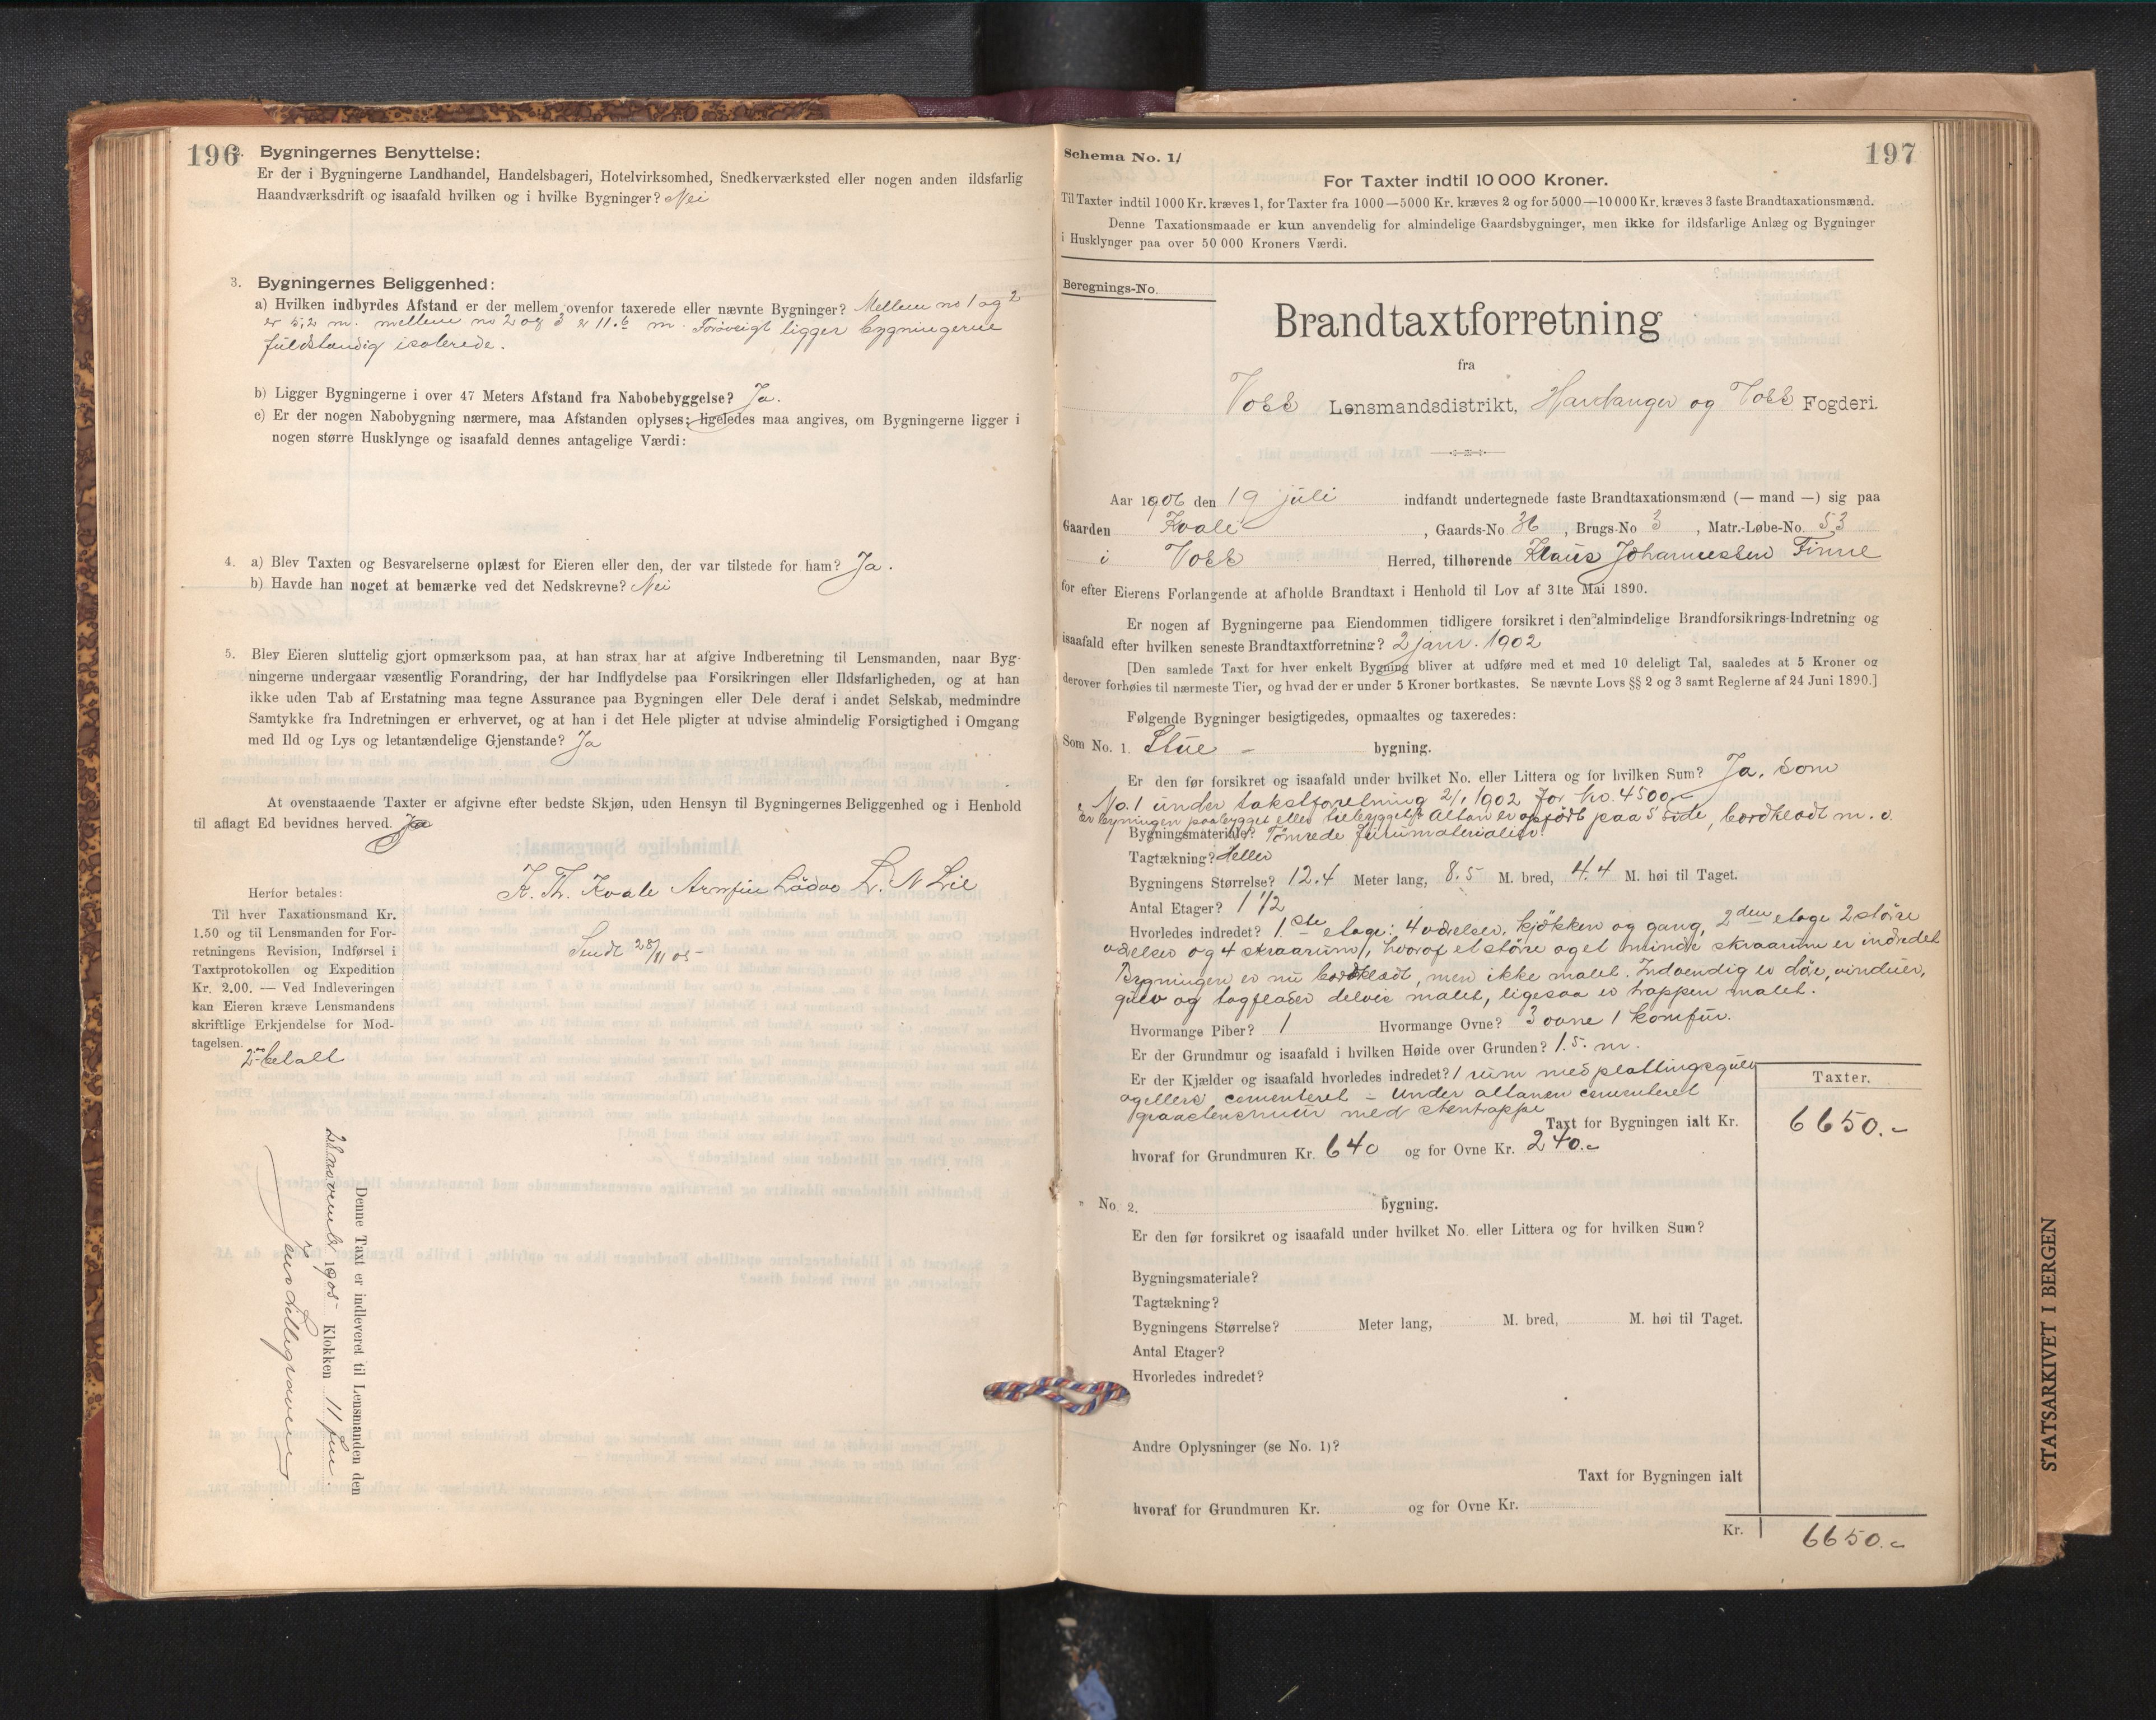 196
2. Bygningernes Benyttelse:
Er der i Bygningerne Landhandel, Handelsbageri, Hotelvirksomhed, Snedkerværksted eller nogen anden ildsfarlig
Haandværksdrift og isaafald hvilken og i hvilke Bygninger? Nei
3. Bygningernes Beliggenhed:
a) Hvilken indbyrdes Afstand er der mellem ovenfor taxerede eller nævnte Bygninger? Mellem no 1 og 2
er 5,2 m. mellem no 2 og 3 er 11.6 m. Forøvrigt ligger bygningerne
fuldstændig isolerede.
b) Ligger Bygningerne i over 47 Meters Afstand fra Nabobebyggelse? Ja.
c) Er der nogen Nabobygning nærmere, maa Afstanden oplyses; ligeledes maa angives, om Bygningerne ligger i
nogen større Husklynge og isaafald dennes antagelige Værdi:
4. a) Blev Taxten og Besvarelserne oplæst for Eieren eller den, der var tilstede for ham? Ja.
b) Havde han noget at bemærke ved det Nedskrevne? Nei
5. Blev Eieren sluttelig gjort opmærksom paa, at han strax har at afgive Indberetning til Lensmanden, naar Byg-
ningerne undergaar væsentlig Forandring, der har Indflydelse paa Forsikringen eller Ildsfarligheden, og at han
ikke uden Tab af Erstatning maa tegne Assurance paa Bygningen eller Dele deraf i andet Selskab, medmindre
Samtykke fra Indretningen er erhvervet, og at han i det Hele pligter at udvise almindelig Forsigtighed i Omgang
med Ild og Lys og letantændelige Gjenstande? Ja
At ovenstaaende Taxter er afgivne efter bedste Skjøn, uden Hensyn til Bygningernes Beliggenhed og i Henhold
til aflagt Ed bevidnes herved. Ja
K. Th. Kvale Arnfin L. N Lie
Sendt 28/11 05
Herfor betales:
Til hver Taxationsmand Kr.
1.50 og til Lensmanden for For-
retningens Revision, Indførsel i
Taxtprotokollen og Expedition
Kr. 2.00. — Ved Indleveringen
kan Eieren kræve Lensmandens
skriftlige Erkjendelse for Mod-
tagelsen.
2 betalt
Denne Taxt er indleveret til Lensmanden den
28 november 1905 Klokken 11 fm.
Lillegraven
197
Schema No. 1/
For Taxter indtil 10 000 Kroner.
Til Taxter indtil 1000 Kr. kræves 1, for Taxter fra 1000—5000 Kr. kræves 2 og for 5000—10 000 Kr. kræves 3 faste Brandtaxationsmænd.
Denne Taxationsmaade er kun anvendelig for almindelige Gaardsbygninger, men ikke for ildsfarlige Anlæg og Bygninger
i Husklynger paa over 50 000 Kroners Værdi.
Beregnings-No.
Brandtaxtforretning
fra
Voss Lensmandsdistrikt, Hardanger og Voss Fogderi.
Aar 1906 den 19 juli indfandt undertegnede faste Brandtaxationsmænd (— mand —) sig paa
Gaarden Kvale, Gaards-No 36, Brugs-No 3, Matr.-Løbe-No. 53
i Voss Herred, tilhørende Klaus Johannessen Finne
for efter Eierens Forlangende at afholde Brandtaxt i Henhold til Lov af 31te Mai 1890.
Er nogen af Bygningerne paa Eiendommen tidligere forsikret i den almindelige Brandforsikrings-Indretning og
isaafald efter hvilken seneste Brandtaxtforretning? 2 janr. 1902
[Den samlede Taxt for hver enkelt Bygning bliver at udføre med et med 10 deleligt Tal, saaledes at 5 Kroner og
derover forhøies til nærmeste Tier, og hvad der er under 5 Kroner bortkastes. Se nævnte Lovs §§ 2 og 3 samt Reglerne af 24 Juni 1890.]
Følgende Bygninger besigtigedes, opmaaltes og taxeredes:
Som No. 1. Stue - bygning.
Er den før forsikret og isaafald under hvilket No. eller Littera og for hvilken Sum? Ja, som
No. 1 under takstforretning 2/1 1902 for kr. 4500.-
Er bygningen paabygget eller tilbygget? Altan er opført paa S side, bordklædt m. v.
Bygningsmateriale? Tømrede furumaterialier.
Tagtækning? Heller
Bygningens Størrelse? 12.4 Meter lang, 8.5 M. bred, 4.4 M. høi til Taget.
Antal Etager? 1 1/2
Hvorledes indredet? 1.ste etage: 4 værelser, kjøkken og gang, 2den etage 2 større
værelser og 4 skraarum, hvoraf et større og et mindre skraarum er indredet
Bygningen er nu bordklædt, men ikke malet. Indvendig er døre, vinduer,
gulv og tagflader delvis malet, ligesaa er trappen malet.
Hvormange Piber? 1 Hvormange Ovne? 3 ovne 1 komfur.
Er der Grundmur og isaafald i hvilken Høide over Grunden? 1.5. m.
Er der Kjælder og isaafald hvorledes indredet? 1 rum med plattingsgulv
ogellers cementeret - Under altanen cementeret
graastensmur med stentrappe
Taxter.
Taxt for Bygningen ialt Kr. 6650.-
hvoraf for Grundmuren Kr. 640 og for Ovne Kr. 240.-
" No. 2. bygning.
Er den før forsikret og isaafald under hvilket No. eller Littera og for hvilken Sum?
Bygningsmateriale?
Tagtækning?
Bygningens Størrelse? Meter lang, M. bred, M. høi til Taget.
Antal Etager?
Hvorledes indredet?
Andre Oplysninger (se No. 1)?
Taxt for Bygningen ialt
hvoraf for Grundmuren Kr. og for Ovne Kr.
Kr. 6650.-
STATSARKIVET I BERGEN